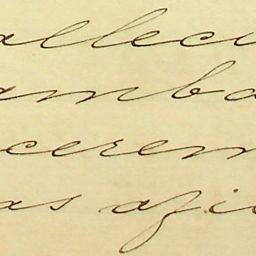 allecu
amba
cerem
as afic